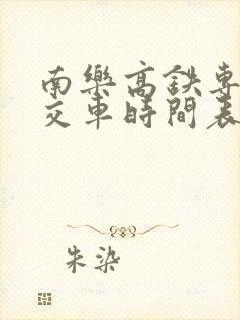 南樂高鉄專
交車時間表
朱染